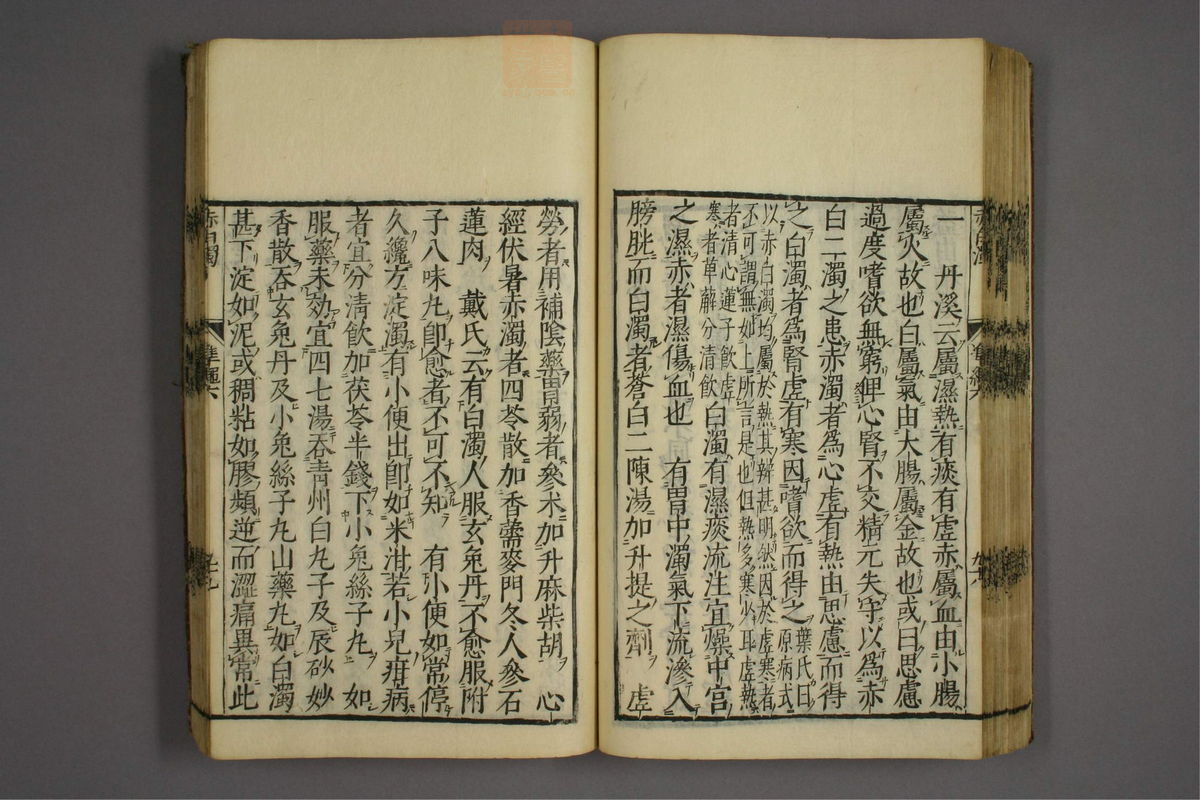 一丹溪云屬濕熱有痰有虛赤屬血由小腸
屬火故也白屬氣由大腸屬金故也或曰思慮
過度嗜欲無窮俾心腎不交精元失守以為赤
白二濁之患赤濁者為心虛有熱由思慮而得
之白濁者為腎虛有寒因嗜欲而得之葉氏曰原病式
以赤白濁均屬於熱其辨甚明然因於虛寒者
不可謂無如上所言是也但熱多寒少耳虛熱
者清心蓮子飲虛
寒者萆薢分清飲
白濁有濕痰流注宜燥中宮
之濕赤者濕傷血也 有胃中濁氣下流滲入
膀胱而白濁者蒼白二陳湯加升提之劑 虛
勞者用補陰藥胃弱者參朮加升麻柴胡 心
經伏暑赤濁者四苓散加香薷麥門冬人參石
蓮肉 戴氏云有白濁人服玄兔丹不愈服附
子八味丸卽愈者不可不知 有小便如常停
久纔方淀濁有小便出卽如米泔若小兒疳病
者宜分清飲加茯苓半錢下小兔絲子丸 如
服藥未効宜四七湯吞青州白丸子及辰砂妙
香散吞玄兔丹及小兔絲子丸山藥丸如白濁
甚下淀如泥或稠粘如膠頻逆而澀痛異常此
赤白濁